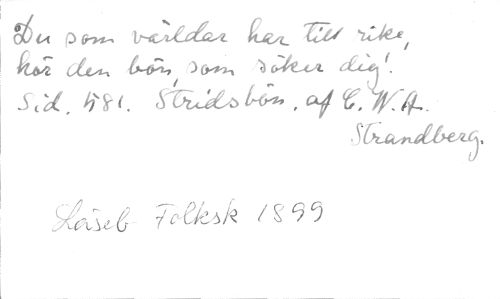 Du som världar har till rike,
hör den bön, som söker dig!
Sid. 481. Stridsbön. af C. W. A.
Strandberg.
Läseb Folksk 1899